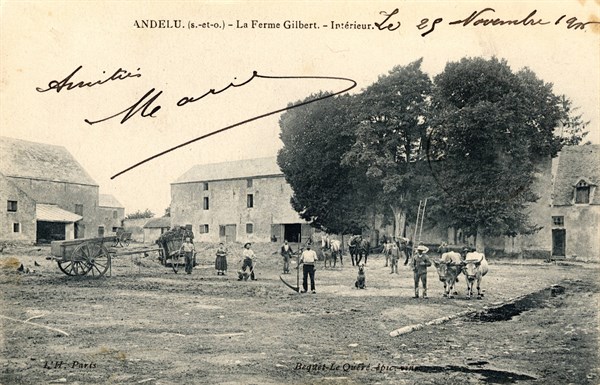 ANDELU. (S.-ET-O.) - La Ferme Gilbert. - Intérieur. Le 25 Novembre
Amitiés
Marie
L'H. Paris
Bequet-Le Quéré, épic.